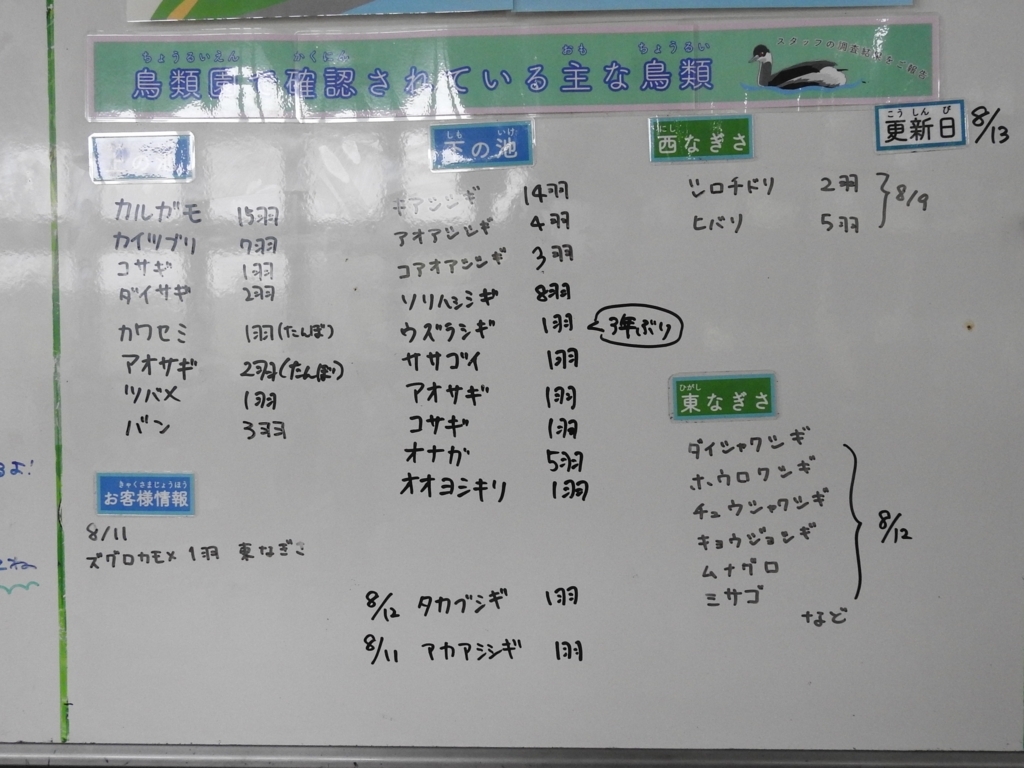 ちょうるいえん かくにん おも ちょうるい
鳥類園で確認されている主な鳥類
スタッフの調査結果をご報告
こうしんび
更新日 8/13
の池
カルガモ 15羽
カイツブリ 7羽
コサギ 1羽
ダイサギ 2羽
カワセミ 1羽(たんぼ)
アオサギ 2羽(たんぼ)
ツバメ 1羽
バン 3羽
きゃくさまじょうほう
お客様情報
8/11
ズグロカモメ 1羽 東なぎさ
しも いけ
下の池
キアシシギ 14羽
アオアシシギ 4羽
コアオアシシギ 3羽
ソリハシシギ 8羽
ウズラシギ 1羽 3年ぶり
ササゴイ 1羽
アオサギ 1羽
コサギ 1羽
オナガ 5羽
オオヨシキリ 1羽
8/12 タカブシギ 1羽
8/11 アカアシシギ 1羽
にし
西なぎさ
シロチドリ 2羽
ヒバリ 5羽
8/9
ひがし
東なぎさ
ダイシャクシギ
ホウロクシギ
チュウシャクシギ
キョウジョシギ
ムナグロ
ミサゴ
など
8/12